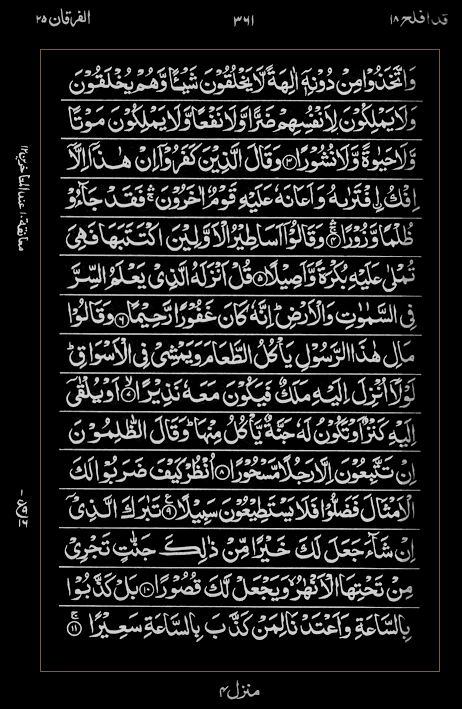 قد افلح ۱۸
۳۶۱
الفرقان ۲۵
وَاتَّخَذُوْا مِنْ دُوْنِهٖۤ اٰلِهَةً لَّا يَخْلُقُوْنَ شَيْـًٔا وَّهُمْ يُخْلَقُوْنَ
وَلَا يَمْلِكُوْنَ لِاَنْفُسِهِمْ ضَرًّا وَّلَا نَفْعًا وَّلَا يَمْلِكُوْنَ مَوْتًا
وَّلَا حَيٰوةً وَّلَا نُشُوْرًا ﴿۳﴾ وَقَالَ الَّذِيْنَ كَفَرُوْۤا اِنْ هٰذَاۤ اِلَّاۤ
اِفْكُ اِۨفْتَرٰىهُ وَاَعَانَهٗ عَلَيْهِ قَوْمٌ اٰخَرُوْنَ ۛۚ فَقَدْ جَآءُوْ
ظُلْمًا وَّزُوْرًا ۛۚ ﴿۴﴾ وَقَالُوْۤا اَسَاطِيْرُ الْاَوَّلِيْنَ اكْتَتَبَهَا فَهِيَ
تُمْلٰى عَلَيْهِ بُكْرَةً وَّاَصِيْلًا ﴿۵﴾ قُلْ اَنْزَلَهُ الَّذِيْ يَعْلَمُ السِّرَّ
فِي السَّمٰوٰتِ وَالْاَرْضِ ؕ اِنَّهٗ كَانَ غَفُوْرًا رَّحِيْمًا ﴿۶﴾ وَقَالُوْا
مَالِ هٰذَا الرَّسُوْلِ يَاْكُلُ الطَّعَامَ وَيَمْشِيْ فِي الْاَسْوَاقِ ؕ
لَوْلَاۤ اُنْزِلَ اِلَيْهِ مَلَكٌ فَيَكُوْنَ مَعَهٗ نَذِيْرًا ﴿۷﴾ اَوْ يُلْقٰۤى
اِلَيْهِ كَنْزٌ اَوْ تَكُوْنُ لَهٗ جَنَّةٌ يَّاْكُلُ مِنْهَا ؕ وَقَالَ الظّٰلِمُوْنَ
اِنْ تَتَّبِعُوْنَ اِلَّا رَجُلًا مَّسْحُوْرًا ﴿۸﴾ اُنْظُرْ كَيْفَ ضَرَبُوْا لَكَ
الْاَمْثَالَ فَضَلُّوْا فَلَا يَسْتَطِيْعُوْنَ سَبِيْلًا ﴿۹﴾ تَبٰرَكَ الَّذِيْۤ
اِنْ شَآءَ جَعَلَ لَكَ خَيْرًا مِّنْ ذٰلِكَ جَنّٰتٍ تَجْرِيْ
مِنْ تَحْتِهَا الْاَنْهٰرُ ۙ وَيَجْعَلْ لَّكَ قُصُوْرًا ﴿۱۰﴾ بَلْ كَذَّبُوْا
بِالسَّاعَةِ وَاَعْتَدْنَا لِمَنْ كَذَّبَ بِالسَّاعَةِ سَعِيْرًا ﴿۱۱﴾
معانقة ۱۰ عند المتاخرين ۱۲
منزل ۴